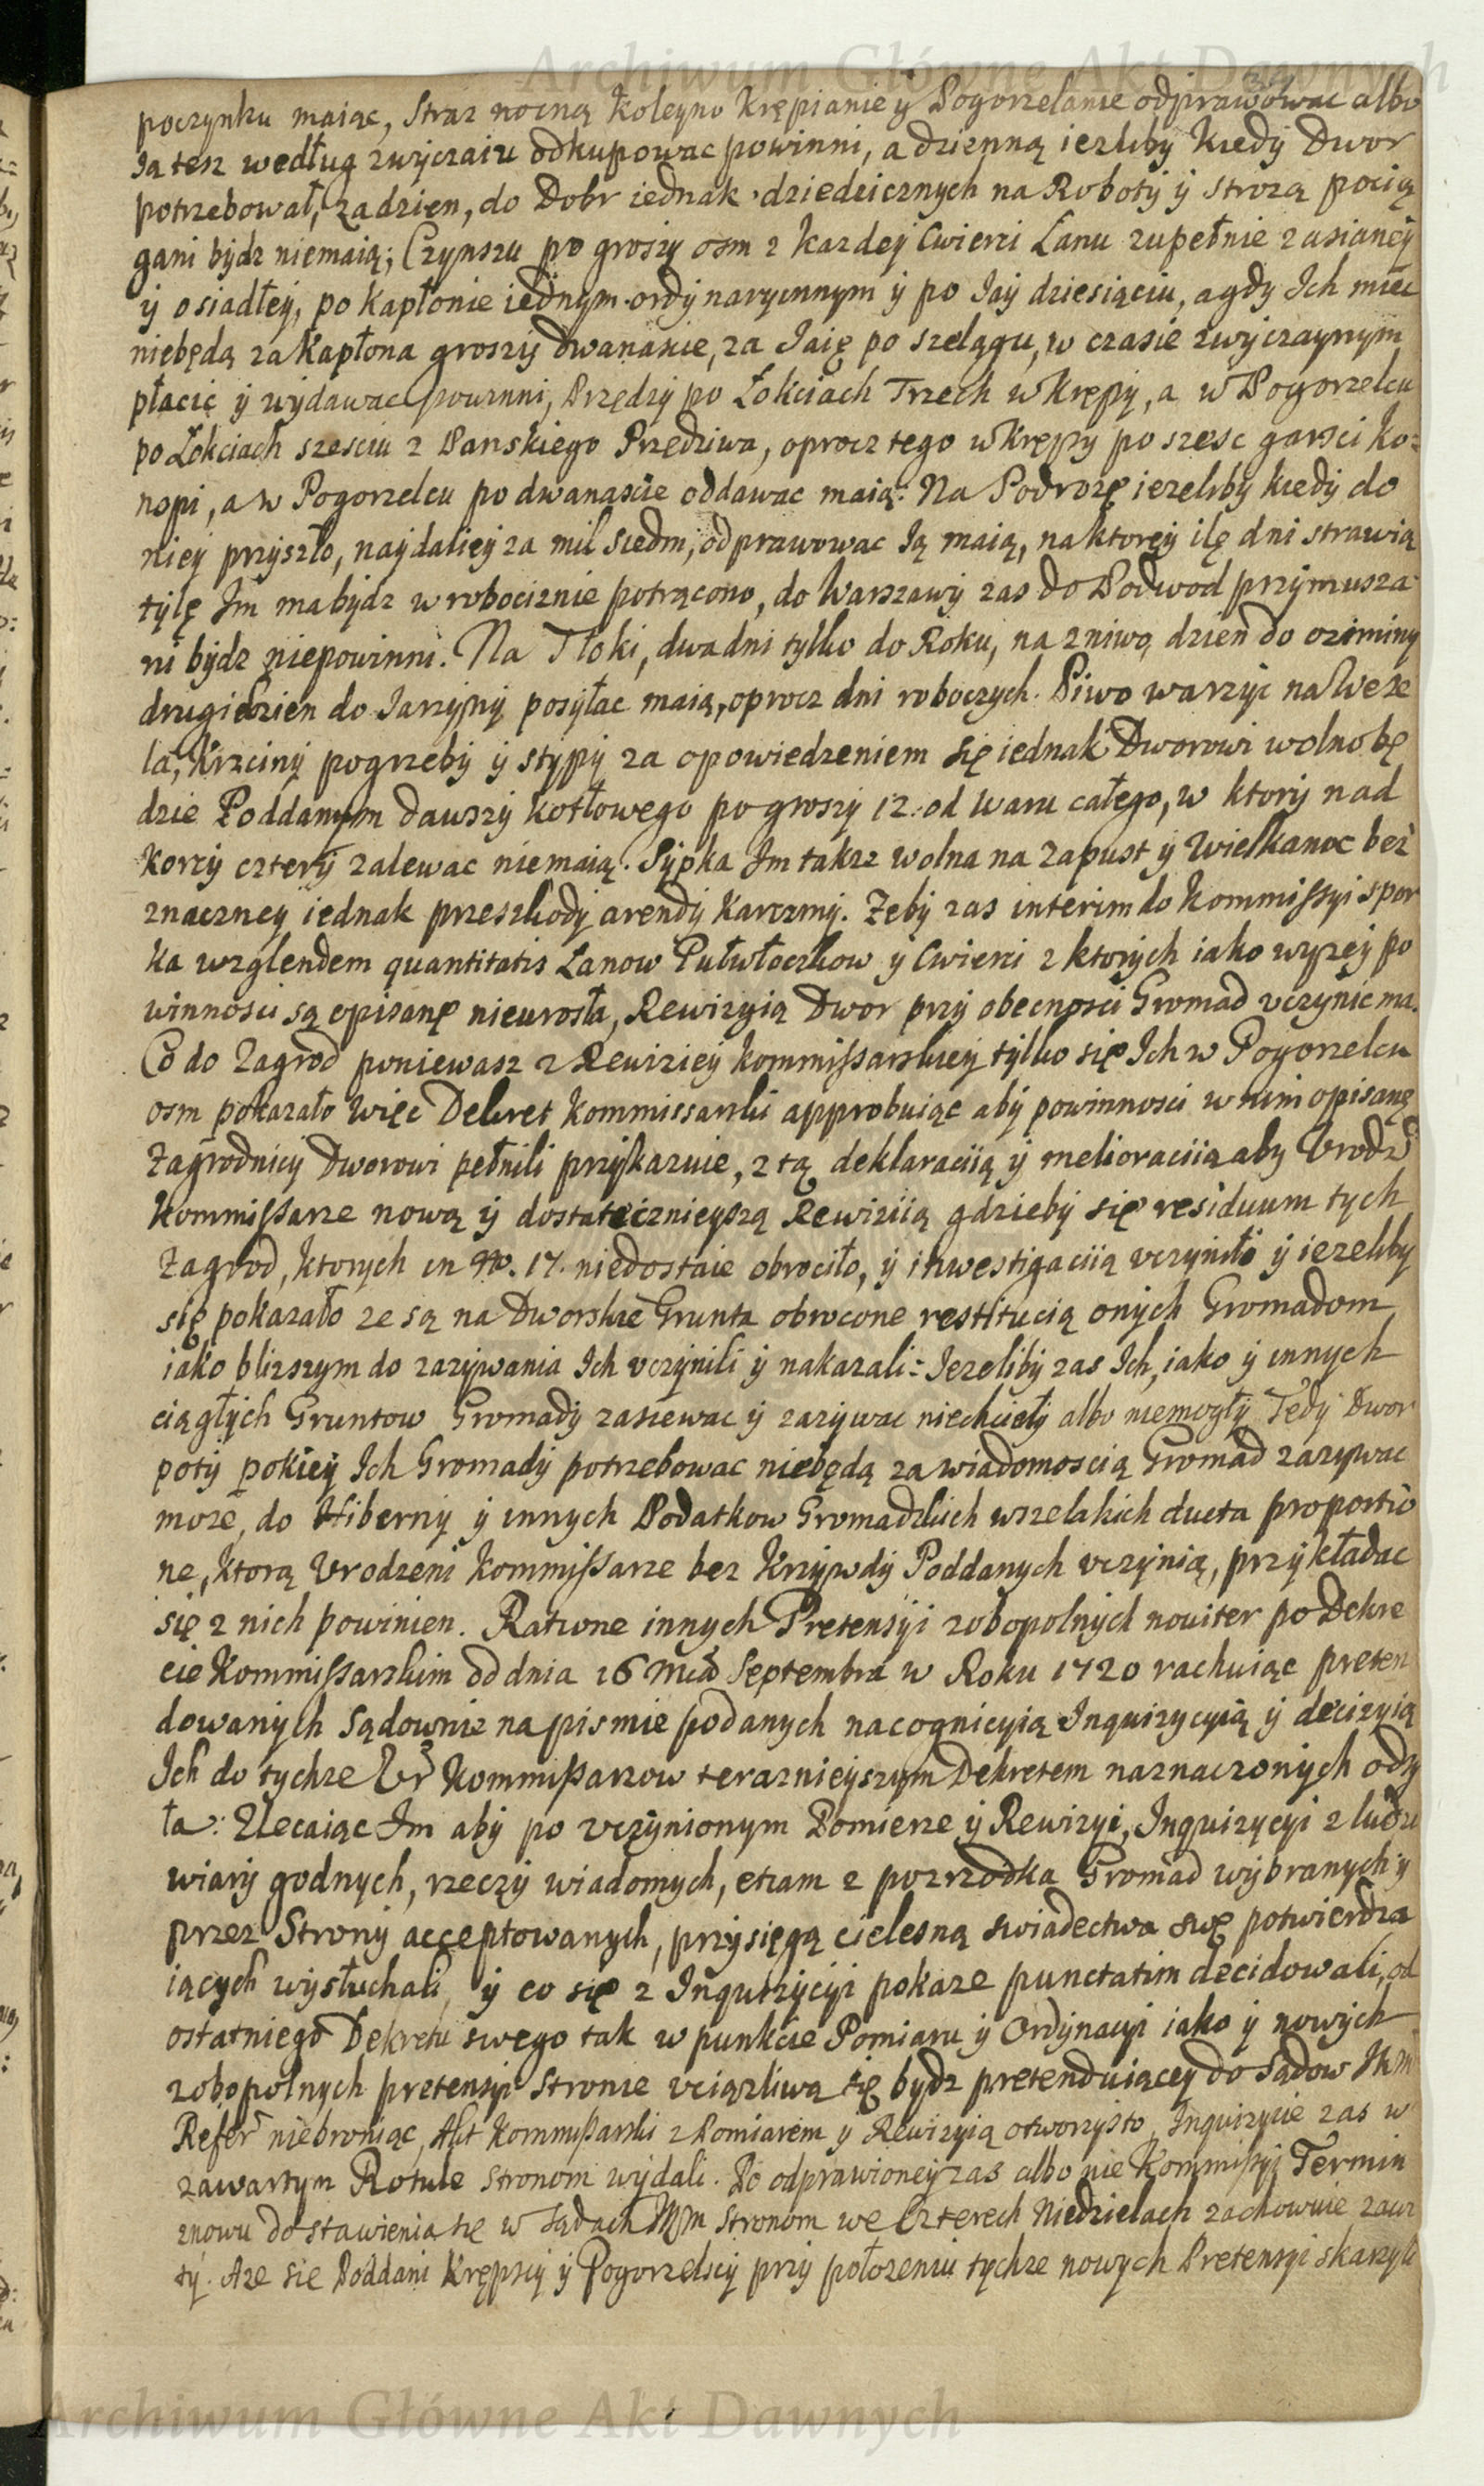 Archiwum Główne Akt Dawnych
poczynku maiąc, Straz nocną Koleyno Krępianie y Pogorzelanie odprawowac albo
Ią tesz według zwyczaiu odkupowac powinni, a dzienną iezliby Kiedy Dwor
potrzebował, za dzien, do Dobr iednak dziedzicznych na Roboty y Strozą pocią
gani bydz niemaią; Czynszu po groszy osm z kazdey Cwierci Lanu zupełnie zasianey
y osiadłey, po Kapłonie iednym ordynaryinnym y po Iay dziesiąciu, a gdy Ich miec
niebędą za Kapłona groszy dwanascie, za Iaię po szelągu, w czasie zwyczaynym
płacic y wydawac powinni, Przędzy po Łokciach Trzech w Krępy, a w Pogorzelcu
po Łokciach szesciu z Panskiego Przedziwa, oprocz tego w Krępy po szesc garsci ko=
nopi, a w Pogorzelcu po dwanascie oddawac maią: Na Podrozę iezeliby kiedy do
niey przyszło, naydaliey za mil siedm, odprawowac Ią maią, na ktorey ilę dni strawią
tylę Im ma bydz w robociznie potrącono, do Warszawy zas do Podwod przymusza
ni bydz niepowinni. Na Tłoki, dwa dni tylko do Roku, na zniwo, dzien do oziminy
drugi dzien do Iarzyny posyłac maią, oprocz dni roboczych. Piwo warzyc na Wese
la, Krzciny pogrzeby y stypy za opowiedzeniem się iednak Dworowi wolno bę
dzie Poddanym dawszy kotłowego po groszy 12. od waru całego, w ktory nad
korcy cztery zalewac niemaią. Sypka Im takze wolna na Zapust y Wielkanoc bez
znaczney iednak przeszkody arendy Karczmy. Zeby zas interim do Kommissyi spor
ka wzglendem quantitatis Lanow Pułwłoczkow y Cwierci z ktorych iako wyzey po
winnosci są opisanę nieurosła, Rewizyią Dwor przy obecnosci Gromad vczynic ma.
Co do Zagrod poniewasz z Rewiziey Kommissarskiey tylko się Ich w Pogorzelcu
osm pokazało więc Dekret Kommissarski approbuiąc aby powinnosci w nim opisanę
Zagrodnicy Dworowi pełnili przykazuie, z tą deklaraciią y melioraciią aby Vrodz
Kommissarze nową y dostatecznieyszą Rewiziią gdzieby się residuum tych
Zagrod, ktorych in No. 17. niedostaie obrociło, y inwestigaciią vczynili y iezeliby
się pokazało ze są na Dworskie Grunta obrocone restitucią onych Gromadom
iako blizszym do zazywania Ich vczynili y nakazali: Iezeliby zas Ich, iako y innych
ciągłych Gruntow Gromady zasiewac y zazywac niechciały albo niemogły Tedy Dwor
poty pokiey Ich Gromady potrzebowac niebędą za wiadomoscią Gromad zazywac
moze, do Hiberny y innych Podatkow Gromadzkich wszelakich ducta proportio
ne, ktorą Vrodzeni Kommissarze bez Krzywdy Poddanych vczynią, przykładac
się z nich powinien. Ratione innych Pretensyi zobopolnych noviter po Dekre
cie Kommissarskim od dnia 16 Mca Septembra w Roku 1720 rachuiąc preten
dowanych Sądownie na pismie podanych na cognicyią Inquizycyią y decizyią
Ich do tychze Vr Kommissarzow teraznieyszym Dekretem naznaczonych odzy
ła: Zlecaiąc Im aby po vczynionym Pomierze y Rewizyi, Inquizycyi z ludzi
wiary godnych, rzeczy wiadomych, etiam z pozrzodka Gromad wybranych y
przez Strony acceptowanych, przysięgą cielesną swiadectwa swę potwierdza
iących wysłuchali, y co się z Inquizycyi pokaze punctatim decidowali, od
ostatniego Dekretu swego tak w punkcie Pomiaru y Ordynacyi iako y nowych
zobopolnych pretensyi Stronie vciązliwą się bydz pretenduiącey do Sądow
Refer niebroniąc, Akt Kommissarski z Pomiarem y Rewizyią otworzysto, Inquizycie zas w
zawartym Rotule Stronom wydali. Po odprawioney zas albo nie Kommissyi Termin
znowu do stawienia się w Sądach Stronom we Czterech Niedzielach zachowuie zawi
ty. Aze Sie Poddani Krępscy y Pogorzelscy przy połozeniu tychze nowych Pretensyi skarzyli
Archiwum Główne Akt Dawnych